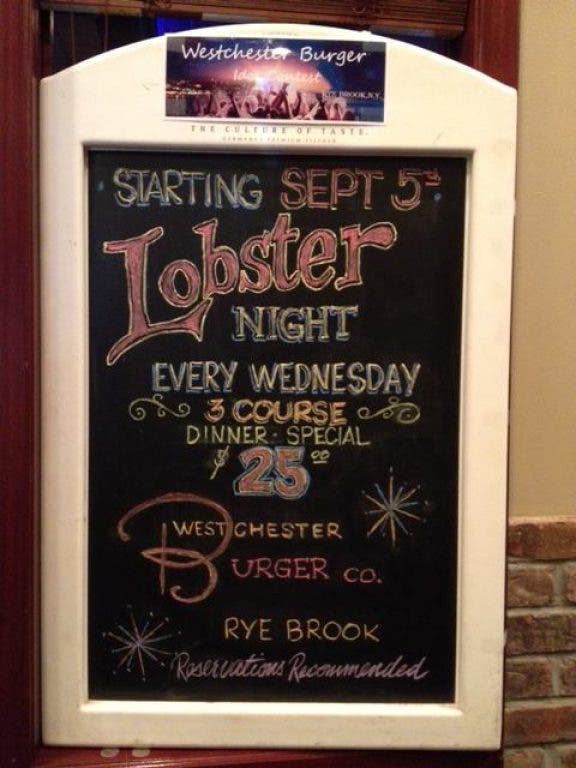 Westchester Burger
Idol Contest
RYE BROOK, N.Y.
THE CULTURE OF TASTE.
GERMANY'S PREMIUM PILSNER
STARTING SEPT 5TH
Lobster
NIGHT
EVERY WEDNESDAY
3 COURSE
DINNER SPECIAL
$25.00
WESTCHESTER
BURGER CO.
RYE BROOK
Reservations Recommended